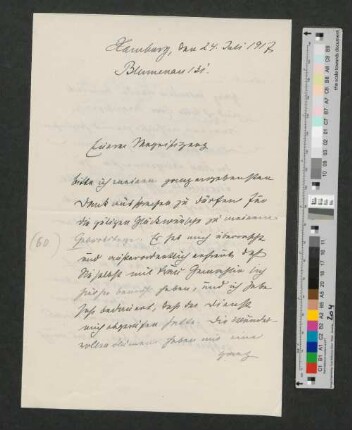 Hamburg, den 24. Juli 1917
Blumenau 131.
Euerer Magnifizenz
bitte ich meinen ganz ergebensten
Dank aussprechen zu dürfen für
die gütigen Glückwünsche zu meinem
(60) Geburtstage. Es hat mich überrascht
und außerordentlich erfreut, daß
Sie selbst mit Frau Gemahlin
haben, und ich habe
sehr bedauert, daß der Dienst
mich abgerufen hatte. Die
vollen Blumen haben mir eine
ganz